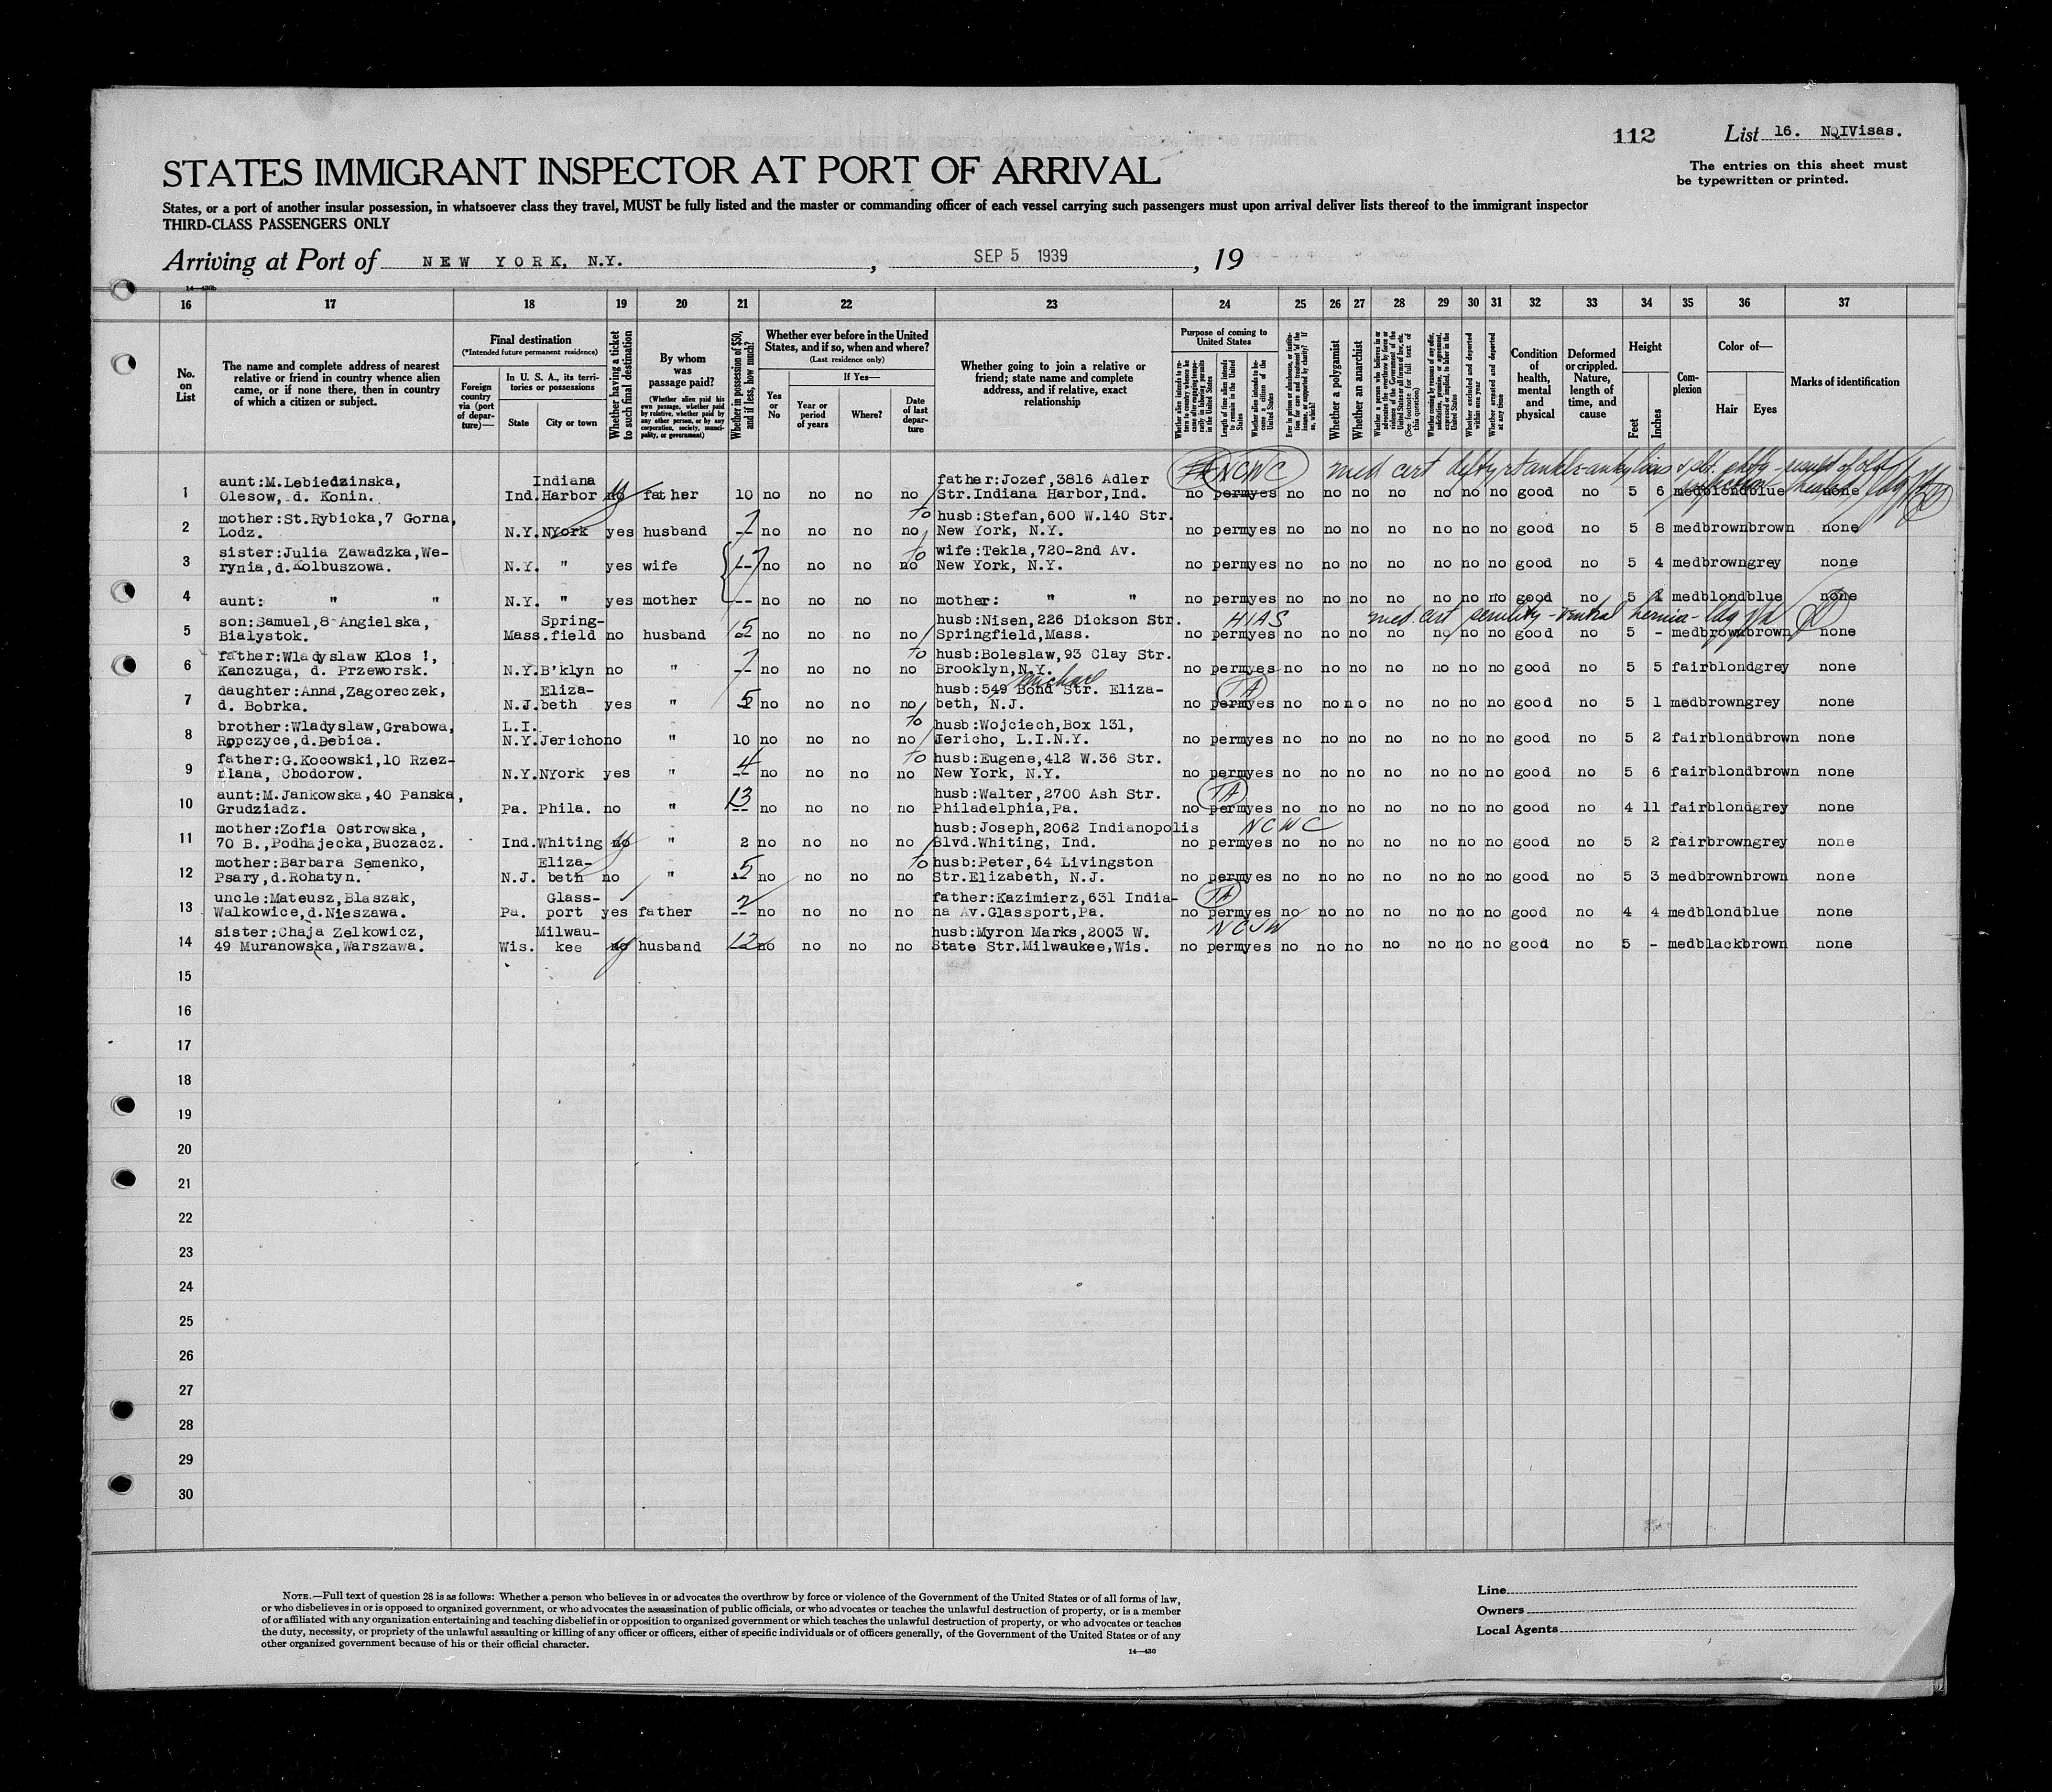 112
List 16. NQIVisas.
STATES IMMIGRANT INSPECTOR AT PORT OF ARRIVAL
The entries on this sheet must
be typewritten or printed.
States, or a port of another insular possession, in whatsoever class they travel, MUST be fully listed and the master or commanding officer of each vessel carrying such passengers must upon arrival deliver lists thereof to the immigrant inspector
THIRD-CLASS PASSENGERS ONLY
Arriving at Port of NEW YORK, N.Y. , SEP 5 1939 , 19
16 17 18 19 20 21 22 23 24 25 26 27 28 29 30 31 32 33 34 35 36 37
No. on List
The name and complete address of nearest
relative or friend in country whence alien
came, or if none there, then in country
of which a citizen or subject.
Final destination
(*Intended future permanent residence)
Foreign country via (port of departure)—
In U. S. A., its territories or possessions
State
City or town
Whether having a ticket to such final destination
By whom was passage paid?
(Whether alien paid his own passage, whether paid by relative, whether paid by any other person, or by any corporation, society, municipality, or government)
Whether in possession of $50, and if less, how much?
Whether ever before in the United
States, and if so, when and where?
(Last residence only)
Yes or No
If Yes—
Year or period of years
Where?
Date of last departure
Whether going to join a relative or
friend; state name and complete
address, and if relative, exact
relationship
Purpose of coming to United States
Whether a polygamist
Whether an anarchist
Condition of health, mental and physical
Deformed or crippled. Nature, length of time, and cause
Height
Feet
Inches
Complexion
Color of—
Hair
Eyes
Marks of identification
NCWC
aunt:M.Lebiedzinska, Indiana father:Jozef,3816 Adler
1 Olesow, d. Konin. Ind. Harbor no father 10 no no no no Str.Indiana Harbor,Ind. no perm yes no no no no no no no good 5 6 med blond blue none
mother:St.Rybicka,7 Gorna, husb:Stefan,600 W.140 Str.
2 Lodz. N.Y. NYork yes husband -- no no no no New York, N.Y. no perm yes no no no no no no no good no 5 8 med brown brown none
sister:Julia Zawadzka,We- wife:Tekla,720-2nd Av.
3 rynia,d.Kolbuszowa. N.Y. " yes wife -- no no no no New York, N.Y. no perm yes no no no no no no no good no 5 4 med brown grey none
4 aunt: " " N.Y. " yes mother -- no no no no mother: " " no perm yes no no no no no no no good no 5 med blond blue none
son:Samuel,8 Angielska, Spring- husb:Nisen,226 Dickson Str. HIAS med. cert senility - ventral hernia
5 Bialystok. Mass. field no husband no no no no Springfield,Mass. no perm yes no no no no no no no good no 5 - med brown brown none
father:Wladyslaw Klos !, husb:Boleslaw,93 Clay Str.
6 Kanczuga, d. Przeworsk. N.Y. B'klyn no " -- no no no no Brooklyn,N.Y. no perm yes no no no no no no no good no 5 5 fair blond grey none
Michael
daughter:Anna,Zagoreczek, Eliza- husb:549 Bond Str. Eliza- TA
7 d. Bobrka. N.J. beth yes " 5 no no no no beth, N.J. no perm yes no no no no no no no good no 5 1 med brown grey none
brother:Wladyslaw,Grabowa, L.I. husb:Wojciech,Box 131,
8 Ropczyce,d.Debica. N.Y. Jericho no " 10 no no no no Jericho, L.I.N.Y. no perm yes no no no no no no no good no 5 2 fair blond brown none
father:G.Kocowski,10 Rzez- 4 husb:Eugene,412 W.36 Str.
9 niana, Chodorow. N.Y. NYork yes " -- no no no no New York, N.Y. no perm yes no no no no no no no good no 5 6 fair blond brown none
aunt:M.Jankowska,40 Panska, 13 husb:Walter,2700 Ash Str. TA
10 Grudziadz. Pa. Phila. no " -- no no no no Philadelphia,Pa. no perm yes no no no no no no no good no 4 11 fair blond grey none
mother:Zofia Ostrowska, husb:Joseph,2062 Indianopolis NCWC
11 70 B.,Podhajecka,Buczacz. Ind. Whiting no " 2 no no no no Blvd.Whiting, Ind. no perm yes no no no no no no no good no 5 2 fair brown grey none
mother:Barbara Semenko, Eliza- husb:Peter,64 Livingston
12 Psary,d.Rohatyn. N.J. beth no " 5 no no no no Str.Elizabeth, N.J. no perm yes no no no no no no no good no 5 3 med brown brown none
uncle:Mateusz,Blaszak, Glass- 2 father:Kazimierz,631 India- TA
13 Walkowice,d.Nieszawa. Pa. port yes father -- no no no no na Av.Glassport,Pa. no perm yes no no no no no no no good no 4 4 med blond blue none
sister:Chaja Zelkowicz, Milwau- husb:Myron Marks,2003 W. NCJW
14 49 Muranowska,Warszawa. Wis. kee no husband 12 no no no no State Str.Milwaukee,Wis. no perm yes no no no no no no no good no 5 - med black brown none
15
16
17
18
19
20
21
22
23
24
25
26
27
28
29
30
NOTE.—Full text of question 28 is as follows: Whether a person who believes in or advocates the overthrow by force or violence of the Government of the United States or of all forms of law,
or who disbelieves in or is opposed to organized government, or who advocates the assassination of public officials, or who advocates or teaches the unlawful destruction of property, or is a member
of or affiliated with any organization entertaining and teaching disbelief in or opposition to organized government or which teaches the unlawful destruction of property, or who advocates or teaches
the duty, necessity, or propriety of the unlawful assaulting or killing of any officer or officers, either of specific individuals or of officers generally, of the Government of the United States or of any
other organized government because of his or their official character.
14—430
Line
Owners
Local Agents